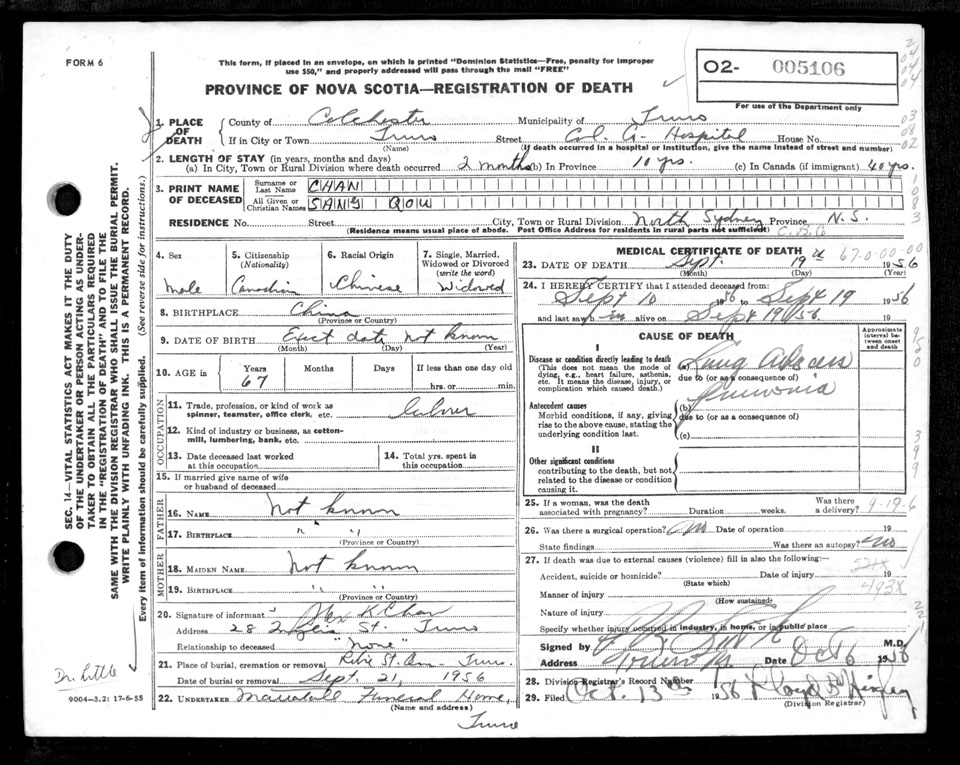 FORM 6
This form, if placed in an envelope, on which is printed "Dominion Statistics—Free, penalty for improper
use $50," and properly addressed will pass through the mail "FREE"
PROVINCE OF NOVA SCOTIA—REGISTRATION OF DEATH
02- 005106
For use of the Department only
1. PLACE OF DEATH
County of Colchester Municipality of Truro
If in City or Town Truro Street Col. Co. Hospital House No.
(Name) (If death occurred in a hospital or institution, give the name instead of street and number)
2. LENGTH OF STAY (in years, months and days)
(a) In City, Town or Rural Division where death occurred 2 months (b) In Province 10 yrs. (c) In Canada (if immigrant) 40 yrs.
3. PRINT NAME OF DECEASED
Surname or Last Name CHAN
All Given or Christian Names SANG QOW
RESIDENCE No. Street City, Town or Rural Division North Sydney Province N.S.
(Residence means usual place of abode. Post Office Address for residents in rural parts not sufficient) C.B.Co
4. Sex
Male
5. Citizenship (Nationality)
Canadian
6. Racial Origin
Chinese
7. Single, Married, Widowed or Divorced (write the word)
Widowed
8. BIRTHPLACE China
(Province or Country)
9. DATE OF BIRTH Exact date not known
(Month) (Day) (Year)
10. AGE in Years Months Days If less than one day old
67 hrs. or min.
OCCUPATION
11. Trade, profession, or kind of work as spinner, teamster, office clerk, etc.
12. Kind of industry or business, as cotton-mill, lumbering, bank, etc.
13. Date deceased last worked at this occupation
14. Total yrs. spent in this occupation
15. If married give name of wife or husband of deceased
FATHER
16. NAME Not known
17. BIRTHPLACE " "
(Province or Country)
MOTHER
18. MAIDEN NAME Not known
19. BIRTHPLACE " "
(Province or Country)
20. Signature of informant K. Chan
Address 28 St. Truro
Relationship to deceased "None"
21. Place of burial, cremation or removal Truro.
Date of burial or removal Sept. 21, 1956
22. UNDERTAKER Funeral Home,
(Name and address)
Truro
MEDICAL CERTIFICATE OF DEATH
67-0-00-00
23. DATE OF DEATH Sept. 19 1956
(Month) (Day) (Year)
24. I HEREBY CERTIFY that I attended deceased from:
Sept 10 1956 to Sept 19 1956
and last saw him alive on Sept 19/56 19
CAUSE OF DEATH
Approximate interval between onset and death
I
Disease or condition directly leading to death
(This does not mean the mode of dying, e.g., heart failure, asthenia, etc. It means the disease, injury, or complication which caused death.)
(a) Lung Abscess
due to (or as a consequence of)
Pneumonia
Antecedent causes
Morbid conditions, if any, giving rise to the above cause, stating the underlying condition last.
(b)
due to (or as a consequence of)
(c)
II
Other significant conditions
contributing to the death, but not related to the disease or condition causing it.
25. If a woman, was the death associated with pregnancy? Duration weeks. Was there a delivery?
9-19-6
26. Was there a surgical operation? no Date of operation 19
State findings Was there an autopsy? no
27. If death was due to external causes (violence) fill in also the following:
Accident, suicide or homicide? Date of injury 19
(State which)
493X
Manner of injury
(How sustained)
Nature of injury
Specify whether injury occurred in industry, in home, or in public place
Signed by M.D.
Address Truro N.S. Date Oct 6 1956
28. Division Registrar's Record Number
29. Filed Oct. 13th 1956 Floyd B.
(Division Registrar)
SEC. 14—VITAL STATISTICS ACT MAKES IT THE DUTY
OF THE UNDERTAKER OR PERSON ACTING AS UNDER-
TAKER TO OBTAIN ALL THE PARTICULARS REQUIRED
IN THE "REGISTRATION OF DEATH" AND TO FILE THE
SAME WITH THE DIVISION REGISTRAR WHO SHALL ISSUE THE BURIAL PERMIT.
WRITE PLAINLY WITH UNFADING INK. THIS IS A PERMANENT RECORD.
Every item of information should be carefully supplied. (See reverse side for instructions.)
Dr. Little
9004—3.2: 17-6-55